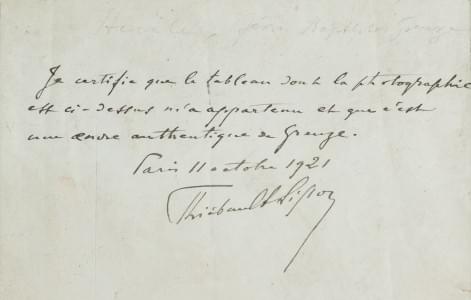 Jean Baptiste Greuze
Je certifie que le tableau dont la photographie
est ci-dessus m'a appartenu et que c'est
une œuvre authentique de Greuze.
Paris 11 octobre 1921
Thiébault Sisson